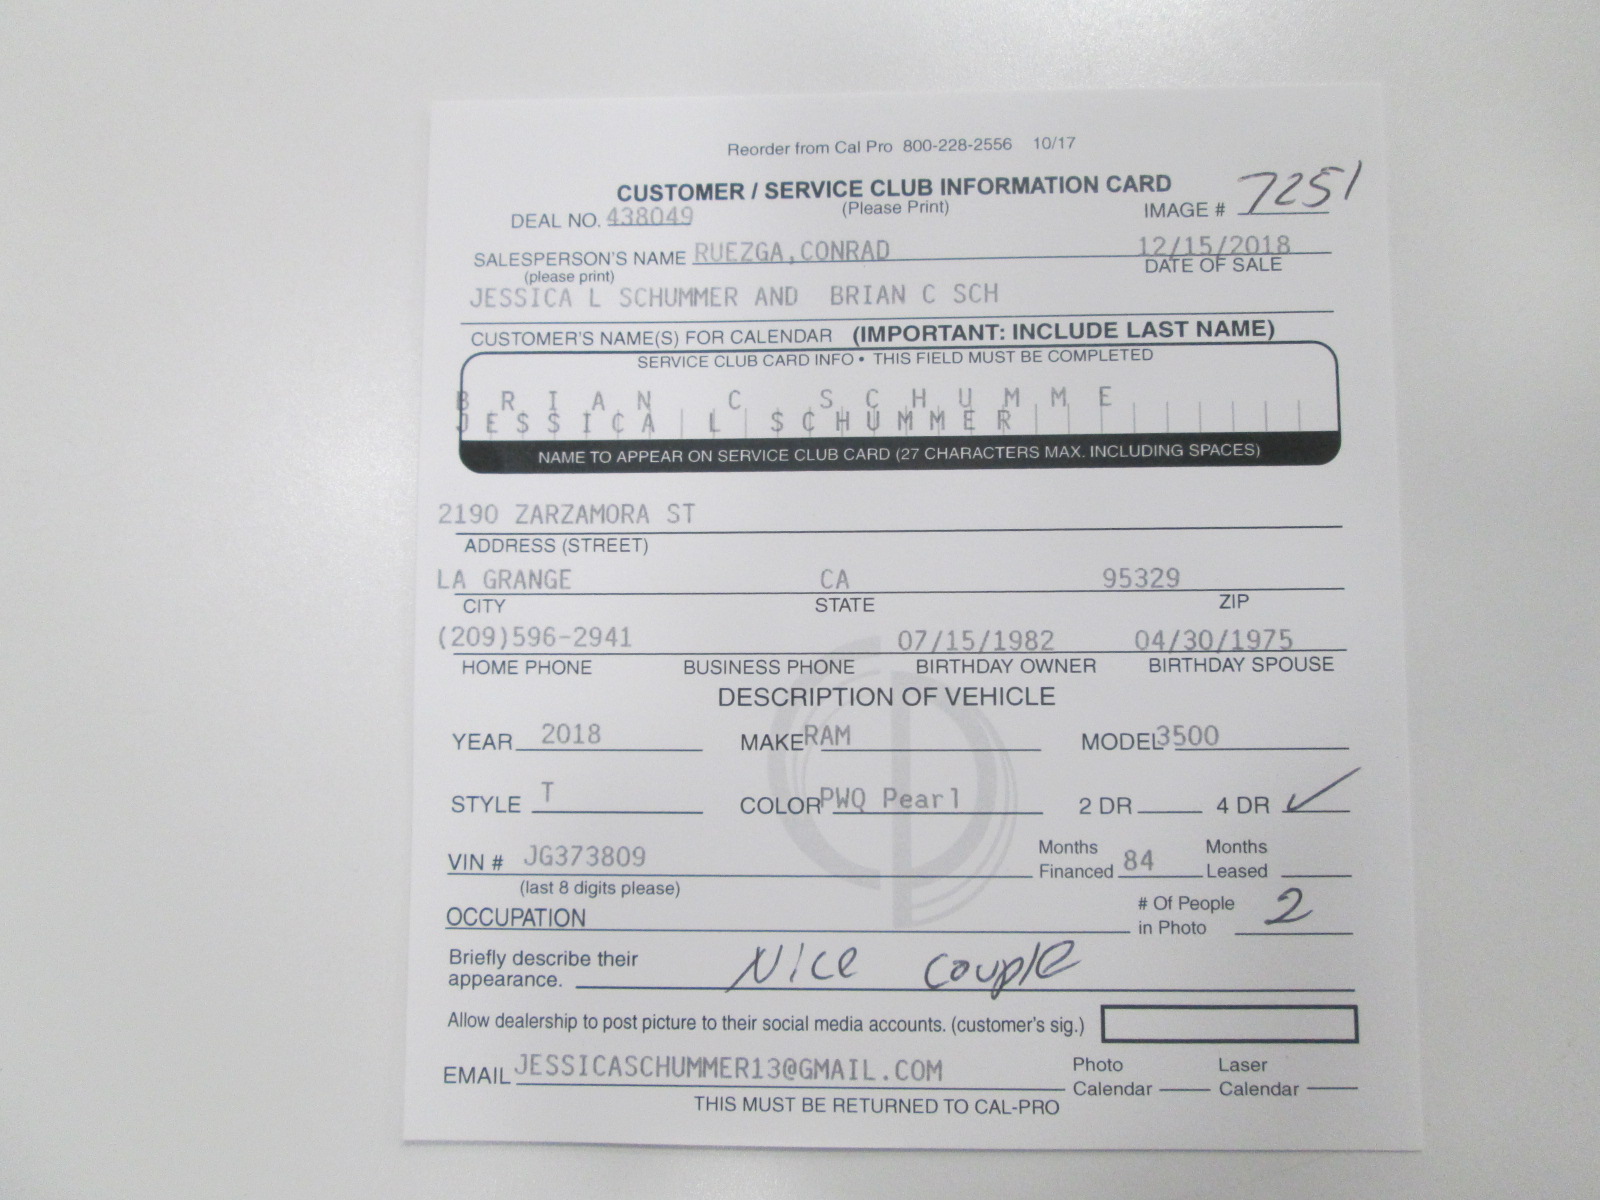 Reorder from Cal Pro 800-228-2556 10/17
CUSTOMER / SERVICE CLUB INFORMATION CARD
(Please Print)
DEAL NO. 438049
IMAGE # 7251
SALESPERSON'S NAME RUEZGA,CONRAD 12/15/2018
(please print) DATE OF SALE
JESSICA L SCHUMMER AND BRIAN C SCH
CUSTOMER'S NAME(S) FOR CALENDAR (IMPORTANT: INCLUDE LAST NAME)
SERVICE CLUB CARD INFO • THIS FIELD MUST BE COMPLETED
BRIAN C SCHUMME
JESSICA L SCHUMMER
NAME TO APPEAR ON SERVICE CLUB CARD (27 CHARACTERS MAX. INCLUDING SPACES)
2190 ZARZAMORA ST
ADDRESS (STREET)
LA GRANGE CA 95329
CITY STATE ZIP
(209)596-2941 07/15/1982 04/30/1975
HOME PHONE BUSINESS PHONE BIRTHDAY OWNER BIRTHDAY SPOUSE
DESCRIPTION OF VEHICLE
YEAR 2018 MAKE RAM MODEL 3500
STYLE T COLOR PWQ Pearl 2 DR 4 DR ✓
VIN # JG373809 Months Financed 84 Months Leased
(last 8 digits please)
OCCUPATION # Of People in Photo 2
Briefly describe their appearance. Nice couple
Allow dealership to post picture to their social media accounts. (customer's sig.)
EMAIL JESSICASCHUMMER13@GMAIL.COM Photo Calendar Laser Calendar
THIS MUST BE RETURNED TO CAL-PRO